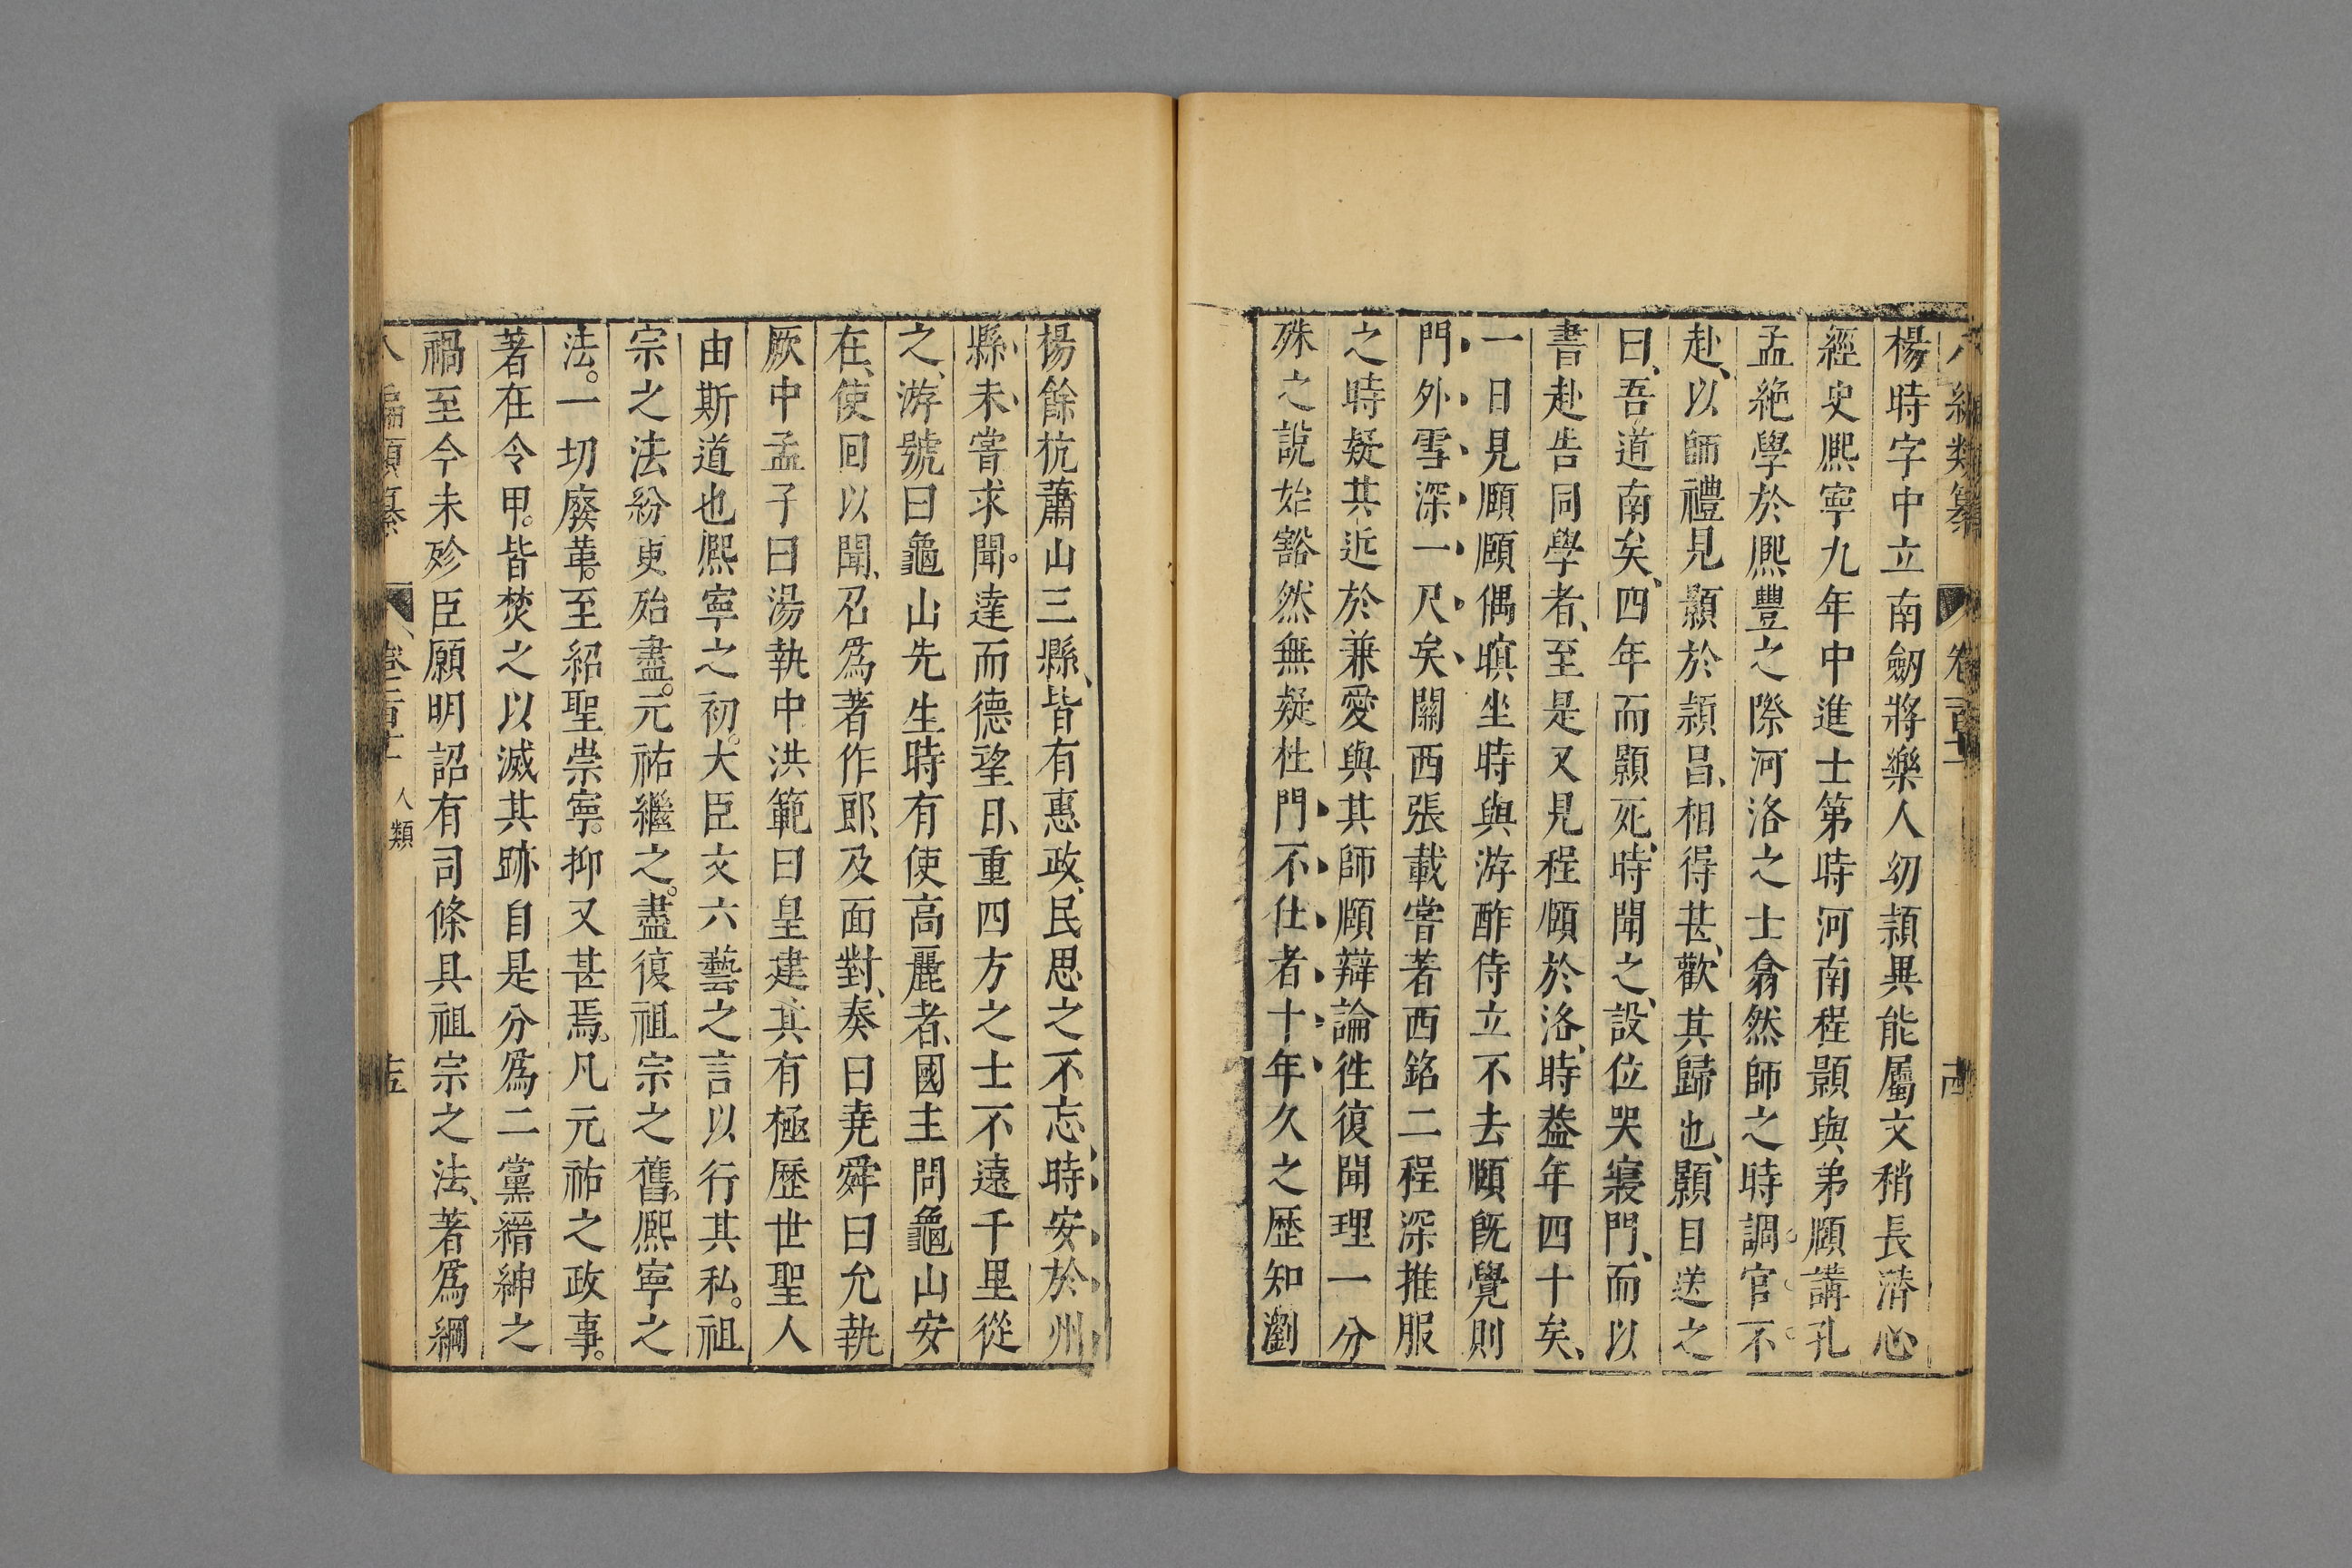 編類纂 卷二百十二 十四
楊時字中立南劒將樂人幼頴異能屬文稍長濳心
經史熈寧九年中進士第時河南程顥與弟頤講孔
孟絶學於熈豐之際河洛之士翕然師之時調官不
赴以師禮見顥於潁昌相得甚歡其歸也顥目送之
曰吾道南矣四年而顥死時聞之設位哭寢門而以
書赴告同學者至是又見程頤於洛時葢年四十矣
一日見頤頤偶瞑坐時與游酢侍立不去頤旣覺則
門外雪深一尺矣關西張載嘗著西銘二程深推服
之時疑其近於兼愛與其師頤辯論徃復聞理一分
殊之說始豁然無疑杜門不仕者十年久之歷知瀏
楊餘杭蕭山三縣皆有惠政民思之不忘時安於州
縣未嘗求聞達而德望日重四方之士不遠千里從
之游號曰龜山先生時有使高麗者國主問龜山安
在使回以聞召爲著作郎及面對奏曰尭舜曰允執
厥中孟子曰湯執中洪範曰皇建其有極歷世聖人
由斯道也熈寧之初大臣文六藝之言以行其私祖
宗之法紛更殆盡元祐繼之盡復祖宗之舊熈寧之
法一切廢革至紹聖崇寧抑又甚焉凡元祐之政事
著在令甲皆焚之以滅其跡自是分爲二黨縉紳之
禍至今未殄臣願明詔有司條具祖宗之法著爲綱
八編類纂 卷二百十二 人類 十五